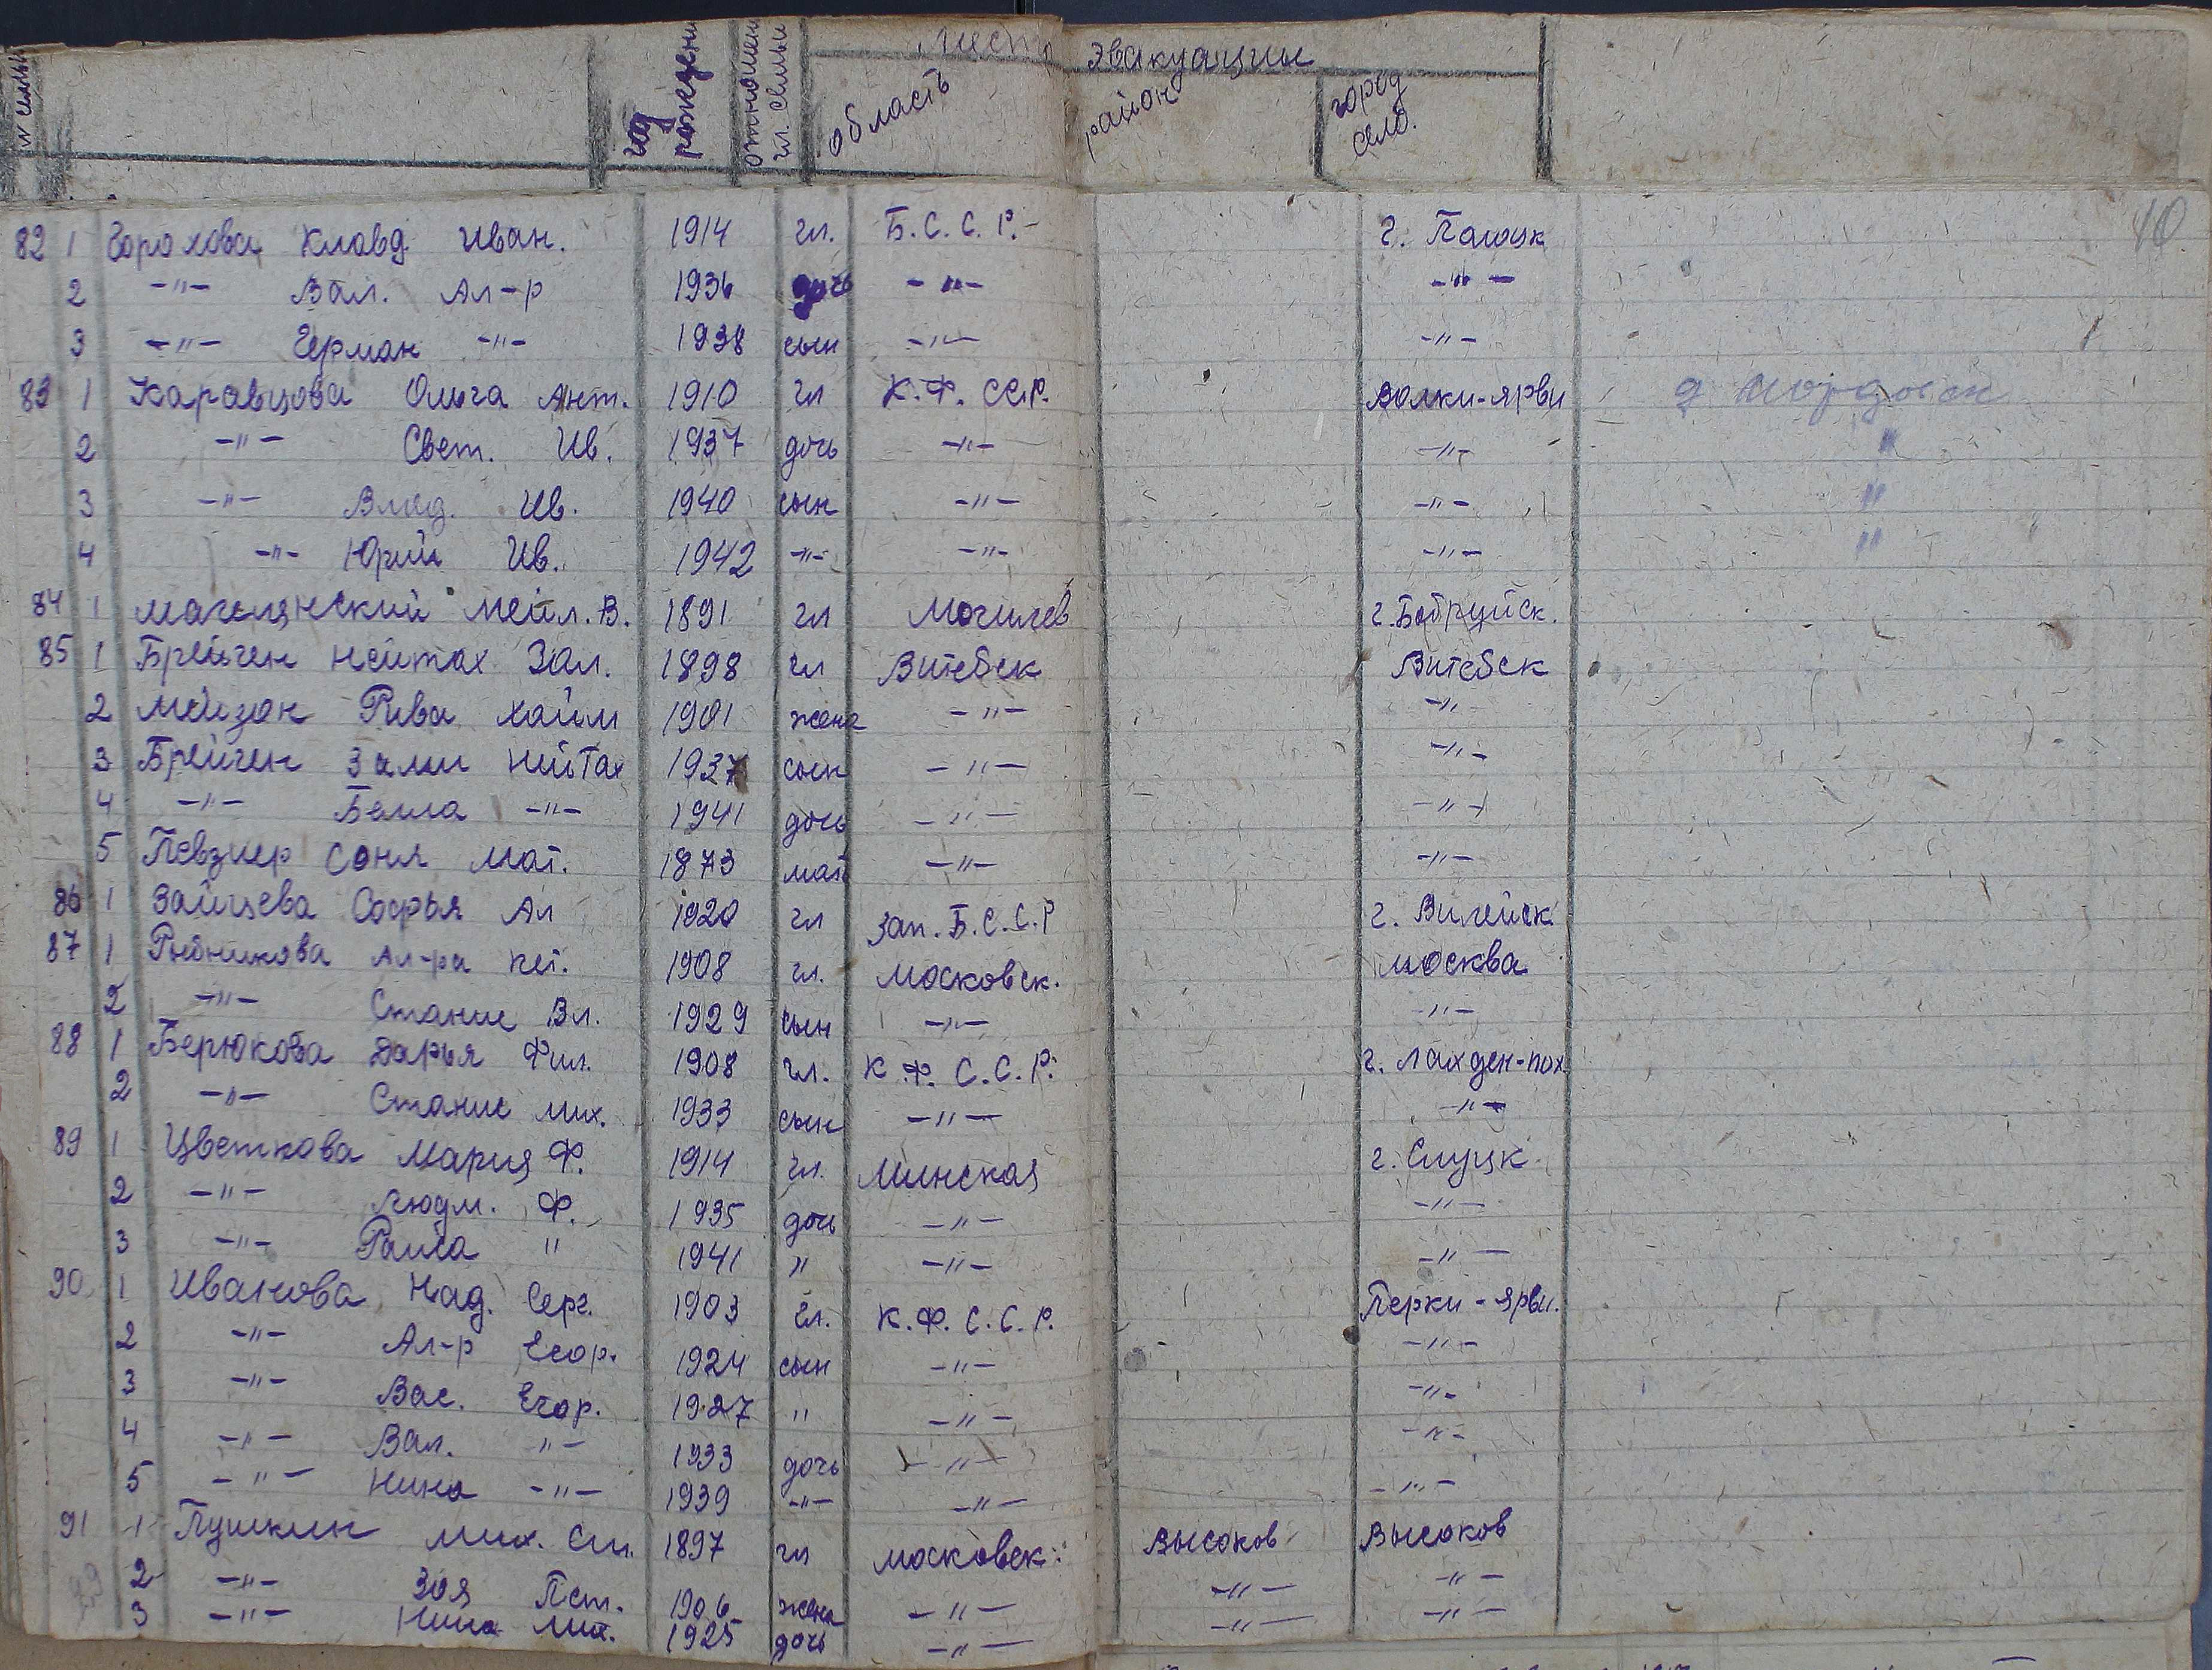 № семьи год рождени отношение гл. семьи место эвакуации
область район город село.
40
82 1 Горохова Клавд Иван. 1914 гл. Б.С.С.Р. г. Полоцк
2 -"- Вал. Ал-р 1936 дочь -"- -"-
3 -"- Герман -"- 1938 сын -"- -"-
83 1 Каравцова Ольга Ант. 1910 гл К.Ф. ССР. Волки-ярви
2 -"- Свет. Ив. 1937 дочь -"- -"- "
3 -"- Влад. Ив. 1940 сын -"- -"- "
4 -"- Юрий Ив. 1942 -"- -"- -"- "
84 1 Мейл. В. 1891 гл Могилев г. Бобруйск.
85 1 Брейген Нейтах Зал. 1898 гл Витебск Витебск
2 Мейзон Рива Хаим 1901 жена -"- -"-
3 Брейген Залм Нейтах 1937 сын -"- -"-
4 -"- Белла -"- 1941 дочь -"- -"-
5 Певзнер Соня Мот. 1873 мать -"- -"-
86 1 Зайцева Софья Ал 1920 гл Зап. Б.С.С.Р г. Вилейск
87 1 Рыбникова Ал-ра Пет. 1908 гл. Московск. Москва
2 -"- Станис Вл. 1929 сын -"- -"-
88 1 Берюкова Дарья Фил. 1908 гл. К.Ф. С.С.Р. г. Лахден-пох
2 -"- Станис Мих. 1933 сын -"- -"-
89 1 Цветкова Мария Ф. 1914 гл. Минская г. Слуцк
2 -"- Людм. Ф. 1935 дочь -"- -"-
3 -"- Раиса " 1941 " -"- -"-
90 1 Иванова Над. Серг. 1903 гл. К.Ф.С.С.Р. Перки-ярви.
2 -"- Ал-р Егор. 1924 сын -"- -"-
3 -"- Вас. Егор. 1927 " -"- -"-
4 -"- Вал. "- 1933 дочь -"- -"-
5 -"- Нина -"- 1939 -"- -"- -"-
91 1 Пушкин Мих. 1897 гл Московск. Высоков Высоков
2 -"- Зоя Пет. 1906 жена -"- -"- -"-
3 -"- Нина Мих. 1925 дочь -"- -"- -"-